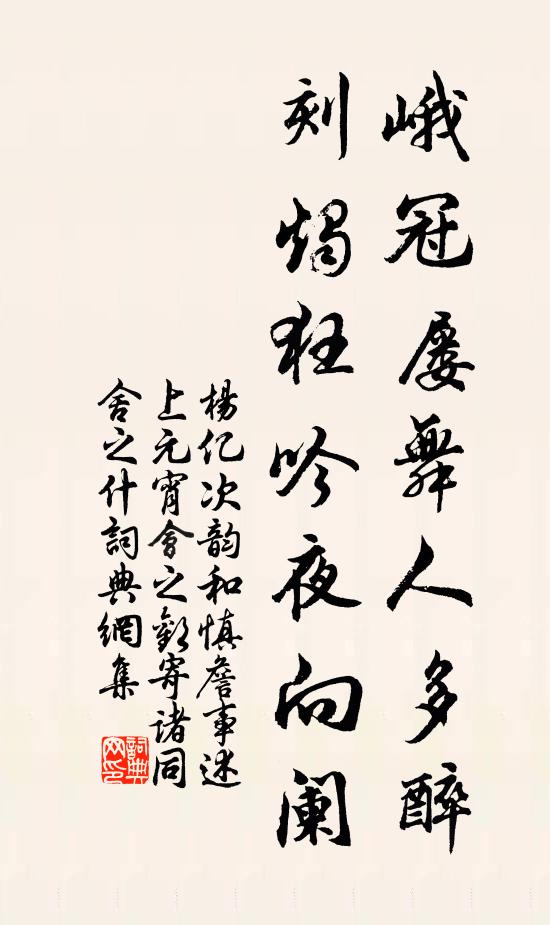 峨冠屡舞人多醉
刻燭狂吟夜向阑
楊亿次韵和慎詹事述
上元宵會之歡寄诸同
舍之什詞典網集
詞典